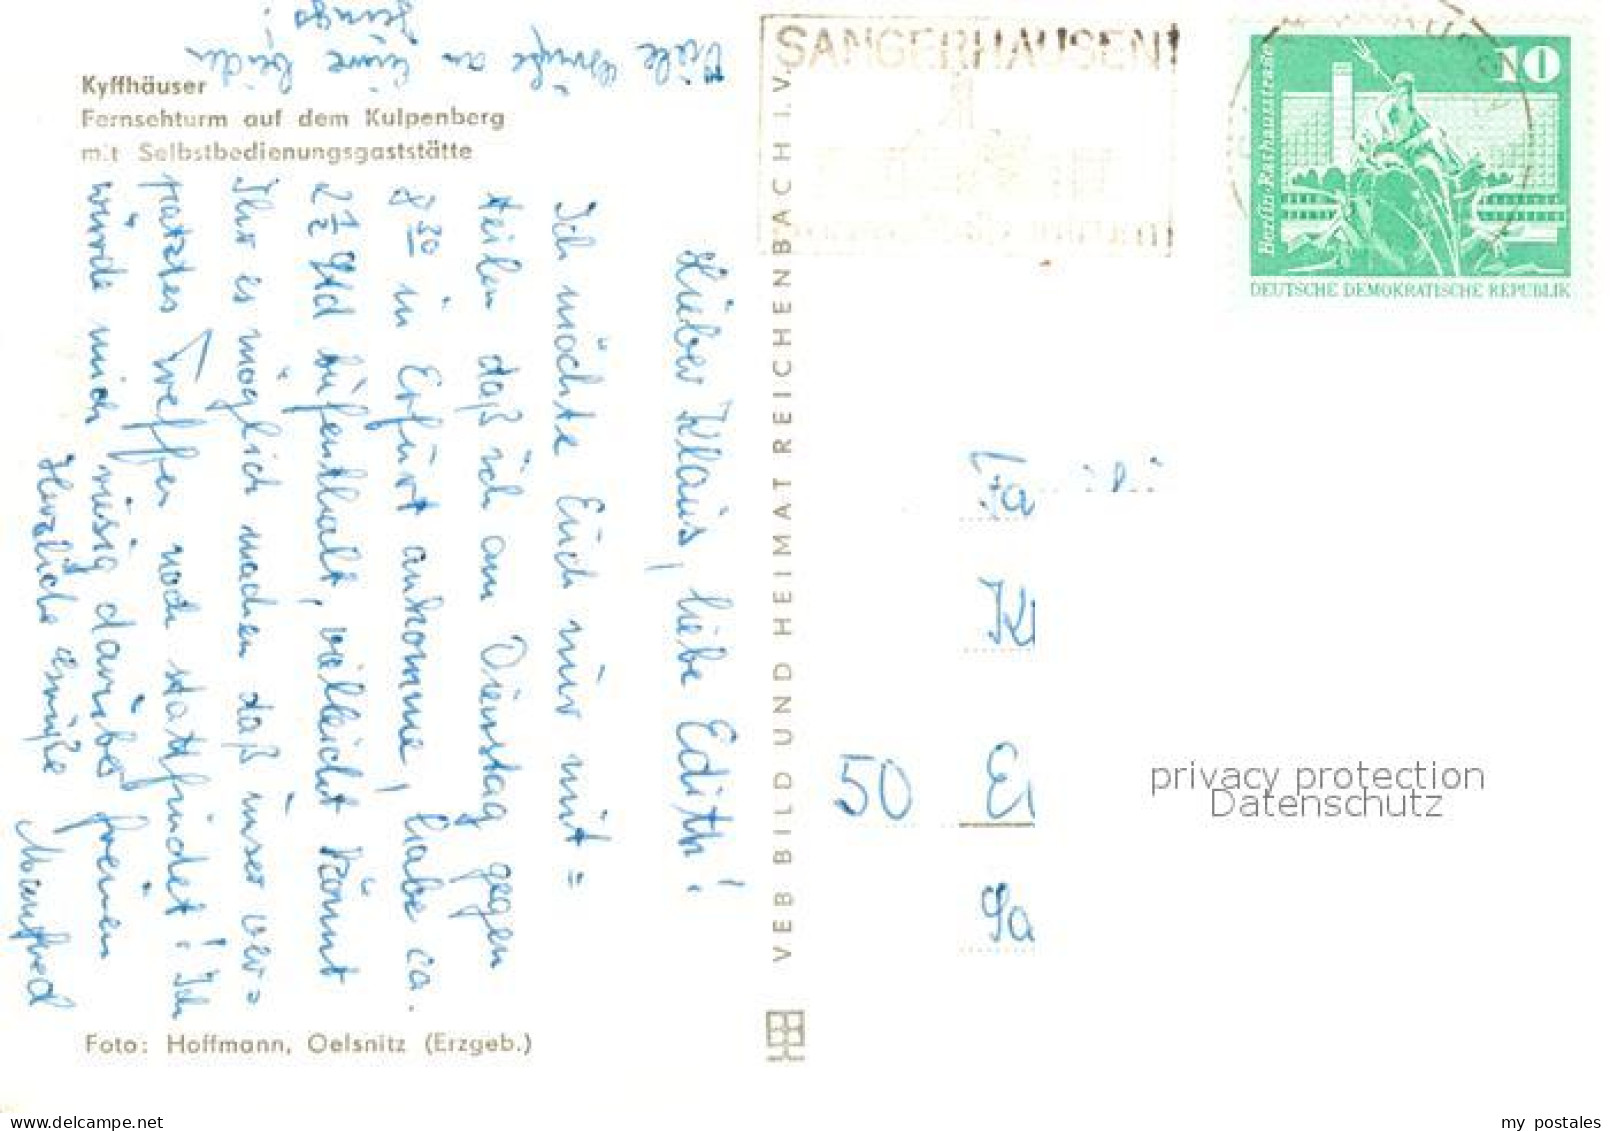 Kyffhäuser
Fernsehturm auf dem Kulpenberg
mit Selbstbedienungsgaststätte
Lieber Klaus, liebe Edith!
Ich möchte Euch nur mit=
teilen daß ich am Dienstag gegen
8 30 in Erfurt ankomme, habe ca.
2 1/2 Std Aufenthalt, vielleicht könnt
Ihr es möglich machen daß unser ver=
patztes Treffen noch stattfindet! Ich
würde mich riesig darüber freuen
Herzliche Grüße Manfred
Viele Grüße an Eure beiden
Jungs!
Foto: Hoffmann, Oelsnitz (Erzgeb.)
VEB BILD UND HEIMAT REICHENBACH I. V.
SANGERHAUSEN
10
Berlin-Rathausstraße
DEUTSCHE DEMOKRATISCHE REPUBLIK
50
privacy protection
Datenschutz
www.delcampe.net
my postales